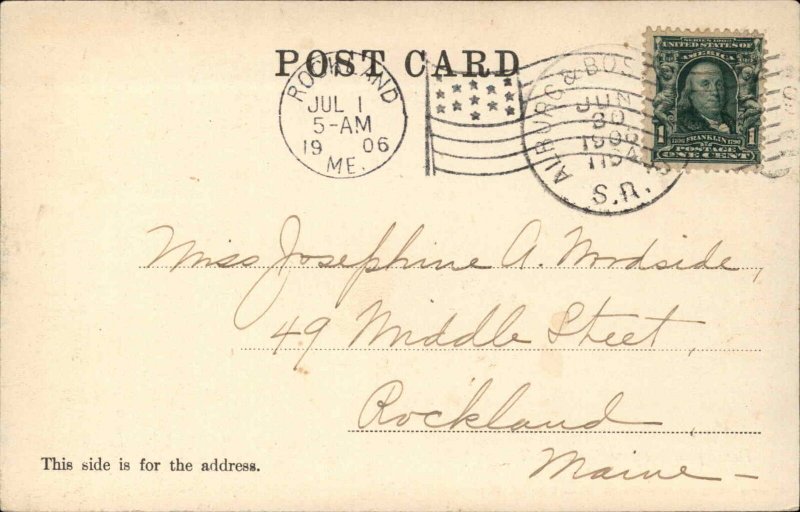 POST CARD
ROCKLAND
JUL 1
5-AM
19 06
ME.
ALBURG & BOS
JUN
30
1906
S.R.
SERIES 1902
UNITED STATES OF
AMERICA
1 FRANKLIN 1
POSTAGE
ONE CENT
Miss Josephine A. Woodside,
49 Middle Street,
Rockland
Maine –
This side is for the address.